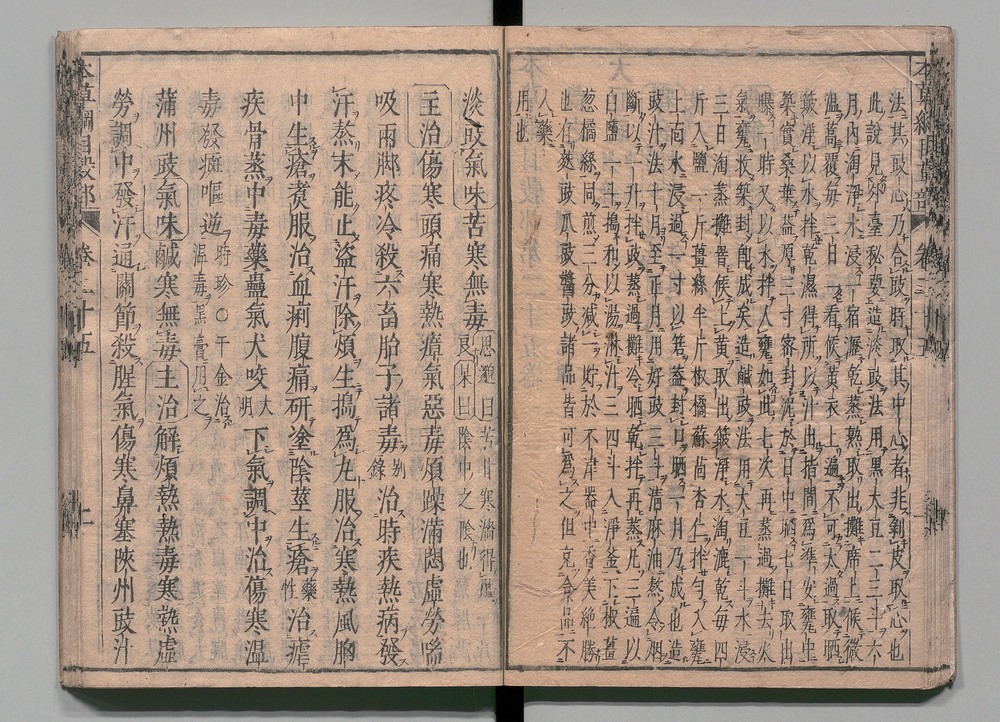 法其豉心乃合豉時取其中心者非剝皮取心也
此說見外臺秘要造淡豉法用黑大豆二三斗六
月內淘淨水浸一宿瀝乾蒸熟取出攤席上候微
溫蒿覆每三日一看候黃衣上遍不可太過取晒
簸淨以水拌乾濕得所以汁出指間爲準安甕中
築實桑葉蓋厚三寸密封泥於日中晒七日取出
曝一時又以水拌入甕如此七次再蒸過攤去火
氣甕收築封卽成矣造鹹豉法用大豆一斗水浸
三日淘蒸攤罯候上黃取出簸淨水淘漉乾每四
斤入鹽一斤薑絲半斤椒橘蘇茴杏仁拌勻入甕
上面水浸過一寸以箬蓋封口晒一月乃成也造
豉汁法十月至正月用好豉三斗清麻油熬令烟
斷以一升拌豉蒸過攤冷晒乾拌再蒸凡三遍以
白鹽一斗搗和以湯淋汁三四斗入淨釜下椒薑
葱橘絲同煎三分減一貯於不津器中香美絶勝
也有麩豉瓜豉醬豉諸品皆可爲之但充食品不
入藥
用也
淡豉氣味苦寒無毒思邈曰苦甘寒濇得醯
良杲曰陰中之陰也
主治傷寒頭痛寒熱瘴氣惡毒煩躁滿悶虛勞喘
吸兩脚疼冷殺六畜胎子諸毒別錄治時疾熱病發
汗熬末能止盜汗除煩生搗爲丸服治寒熱風胸
中生瘡煑服治血痢腹痛研塗陰莖生瘡藥性治瘧
疾骨蒸中毒藥蠱氣犬咬大明下氣調中治傷寒溫
毒發癍嘔逆時珍○千金治
溫毒黑膏用之
蒲州豉氣味鹹寒無毒主治解煩熱熱毒寒熱虛
勞調中發汗通關節殺腥氣傷寒鼻塞陝州豉汁
卷二十五
上